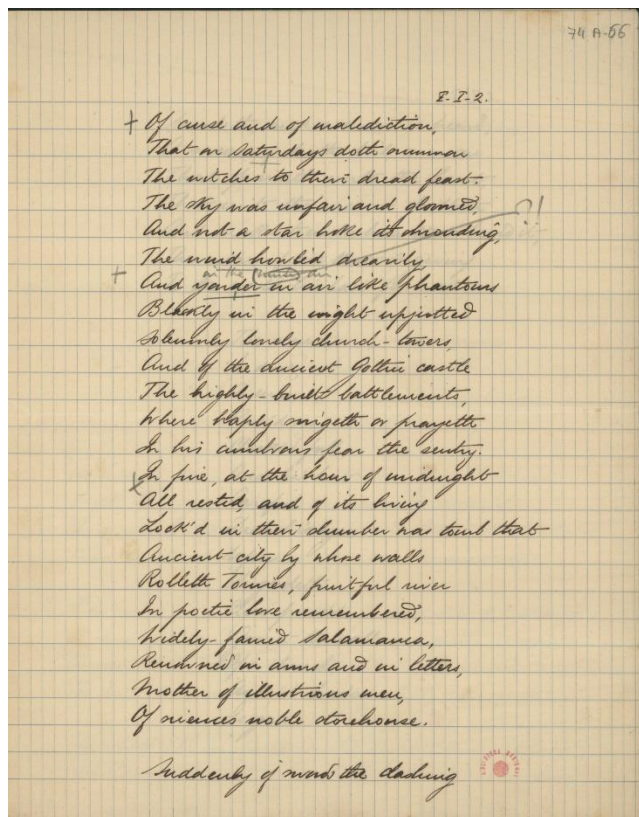 74 A-66
E-I-2.
Of curse and of malediction,
That on Saturdays doth summon
The witches to their dread feast.
The sky was unfair and gloomed, ?!
And not a star broke its shrouding,
The wind howled drearily
on the air
And yonder in air like phantoms
Blackly in the night upjutted
Solemnly lonely church-towers
And of the ancient Gothic castle
The highly-built battlements,
Where haply singeth or prayeth
In his cumbrous fear the sentry.
In fine, at the hour of midnight
All rested, and of its living
Lock'd in their slumber was tomb that
Ancient city by whose walls
Rolleth Tormes, fruitful river
In poetic love remembered,
Widely-famed Salamanca,
Renowned in arms and in letters,
Mother of illustrious men,
Of sciences noble storehouse.
Suddenly of swords the clashing